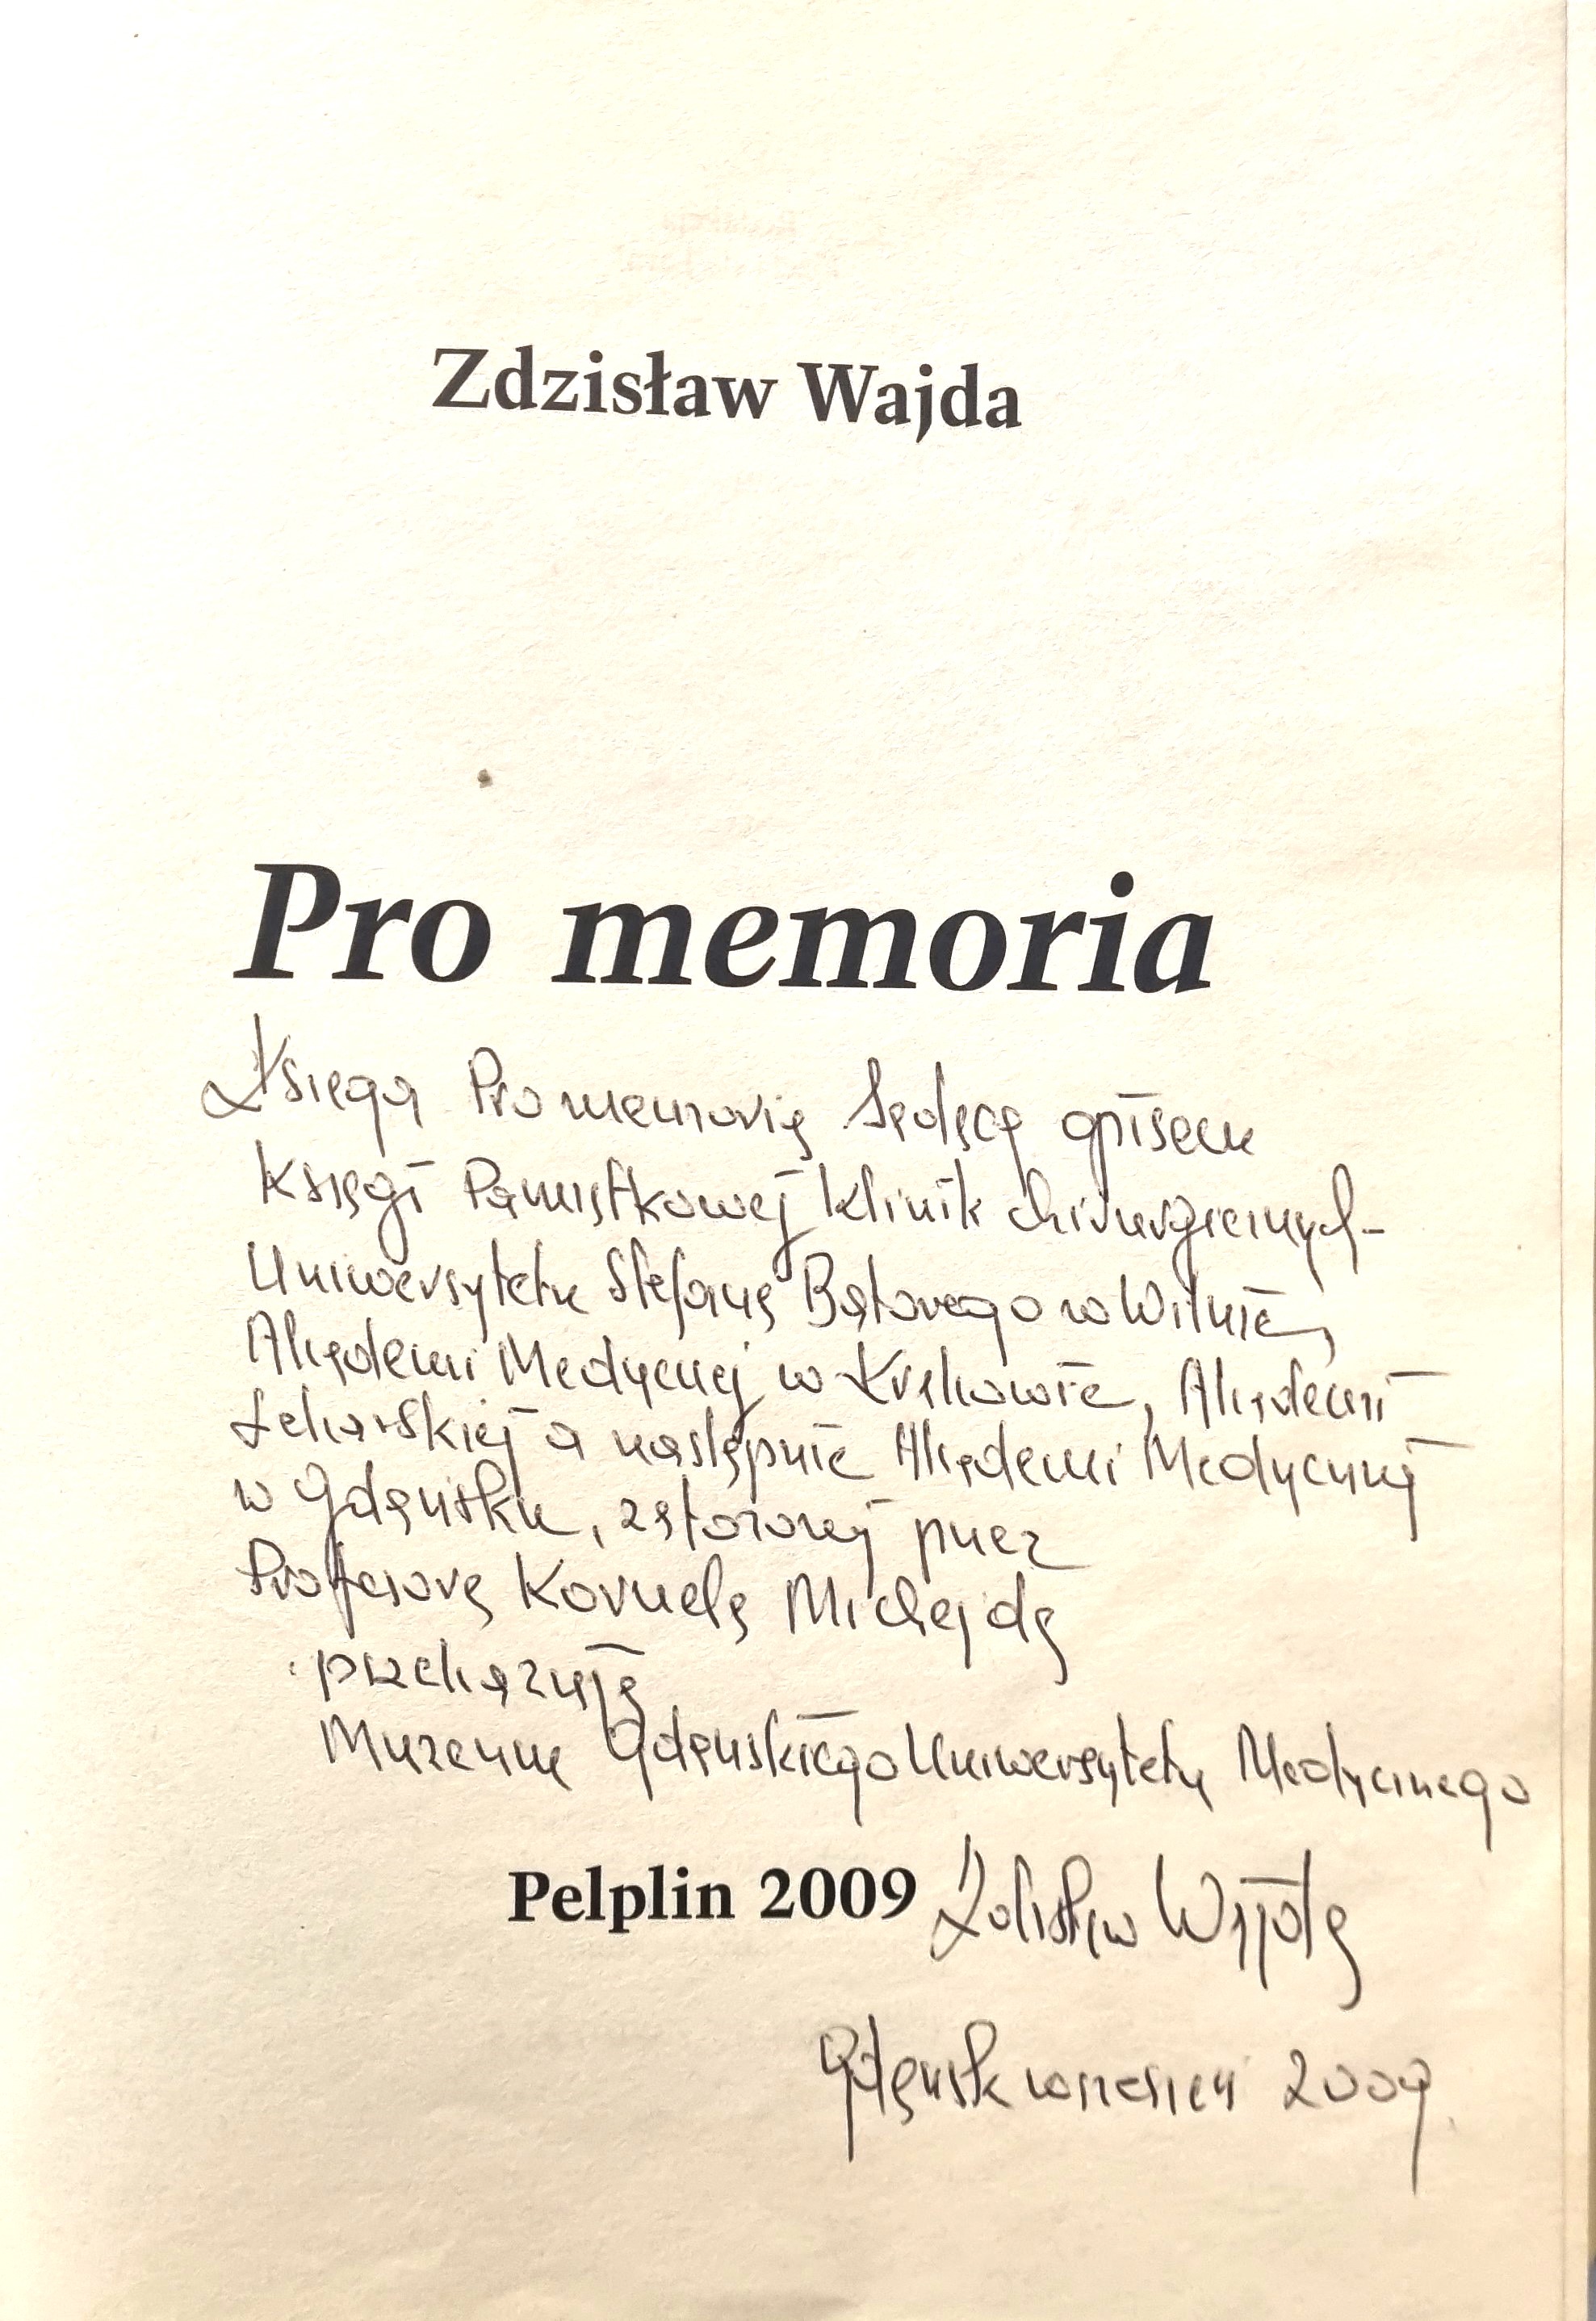 Zdzisław Wajda
Pro memoria
Księgę Pro memoria będącą opisem
Księgi Pamiątkowej Klinik Chirurgicznych
Uniwersytetu Stefana Batorego w Wilnie,
Akademii Medycznej w Krakowie, Akademii
Lekarskiej a następnie Akademii Medycznej
w Gdańsku, założonej przez
Profesora Kornela Michejdę
przekazuję
Muzeum Gdańskiego Uniwersytetu Medycznego
Pelplin 2009 Zdzisław Wajda
Gdańsk wrzesień 2009